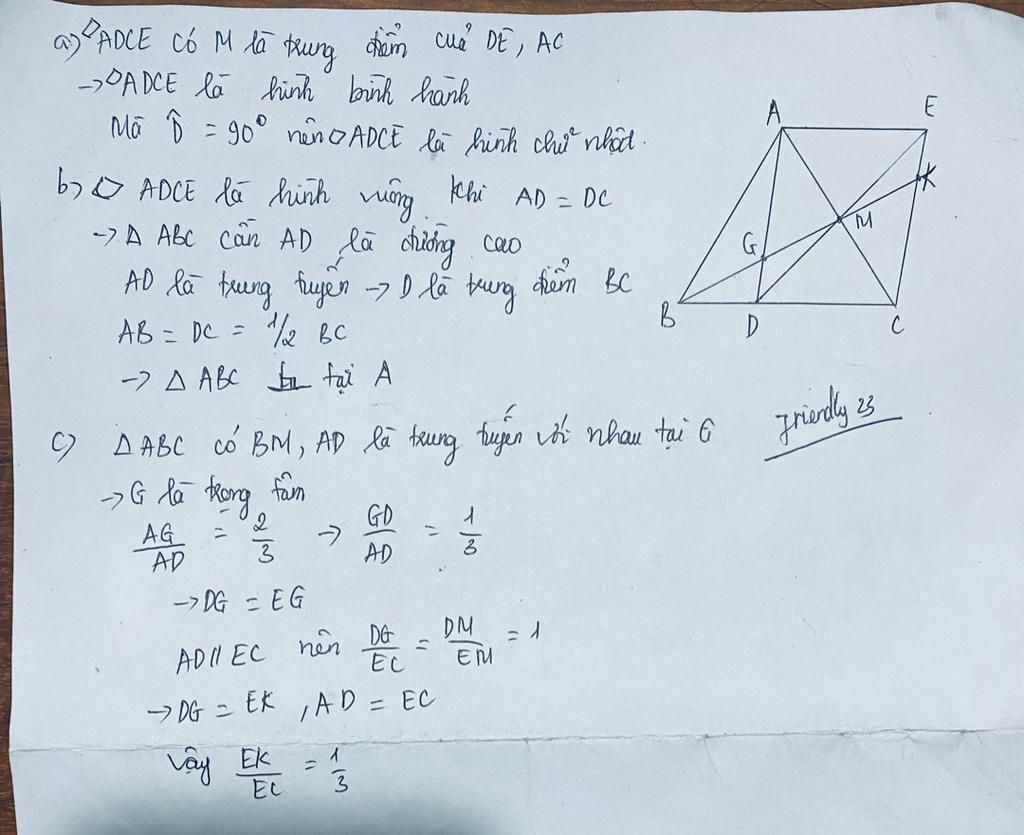 a) ◇ADCE có M là trung điểm cuả DE, AC
→ ◇ADCE là hình bình hành
Mà D̂ = 90° nên ◇ADCE là hình chữ nhật.
b) ◇ ADCE là hình vuông khi AD = DC
→ Δ ABC cân AD là đường cao
AD là trung tuyến → D là trung điểm BC
AB = DC = 1/2 BC
→ Δ ABC tại A
c) Δ ABC có BM, AD là trung tuyến với nhau tại G
→ G là trọng tâm
AG/AD = 2/3 → GD/AD = 1/3
→ DG = EG
AD // EC nên DG/EC = DM/EM = 1
→ DG = EK, AD = EC
Vậy EK/EC = 1/3
A E
K
M
G
B D C
Friendly 23